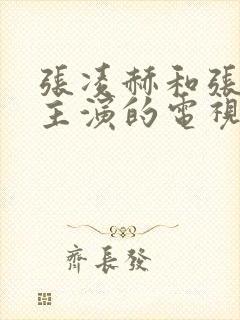 張凌赫和張
主演的電視
齊長發